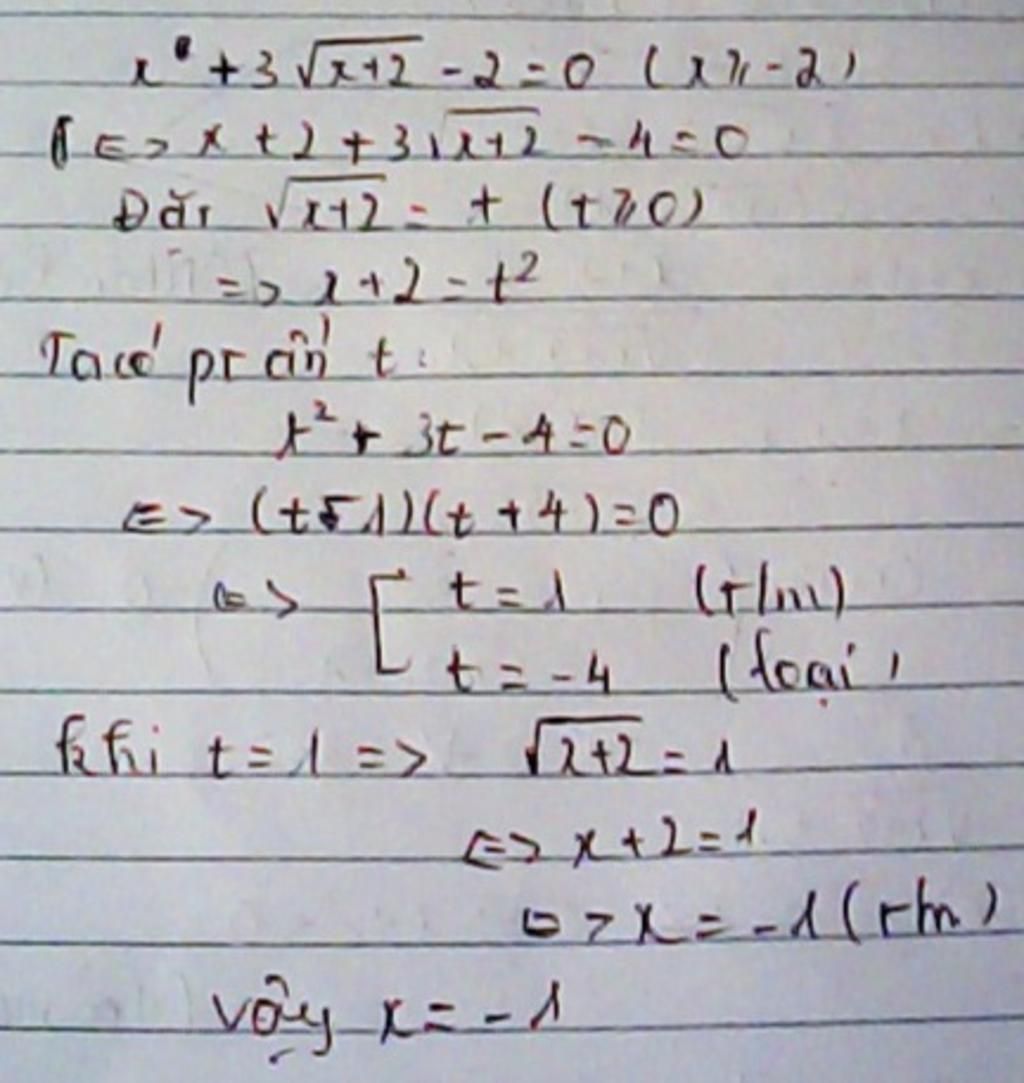 x + 3√(x+2) - 2 = 0 (x ≥ -2)
<=> x + 2 + 3√(x+2) - 4 = 0
Đặt √(x+2) = t (t ≥ 0)
=> x + 2 = t²
Ta có pt ẩn t:
t² + 3t - 4 = 0
<=> (t - 1)(t + 4) = 0
<=> [ t = 1 (t/m)
t = -4 (loại)
Khi t = 1 => √(x+2) = 1
<=> x + 2 = 1
<=> x = -1 (t/m)
Vậy x = -1